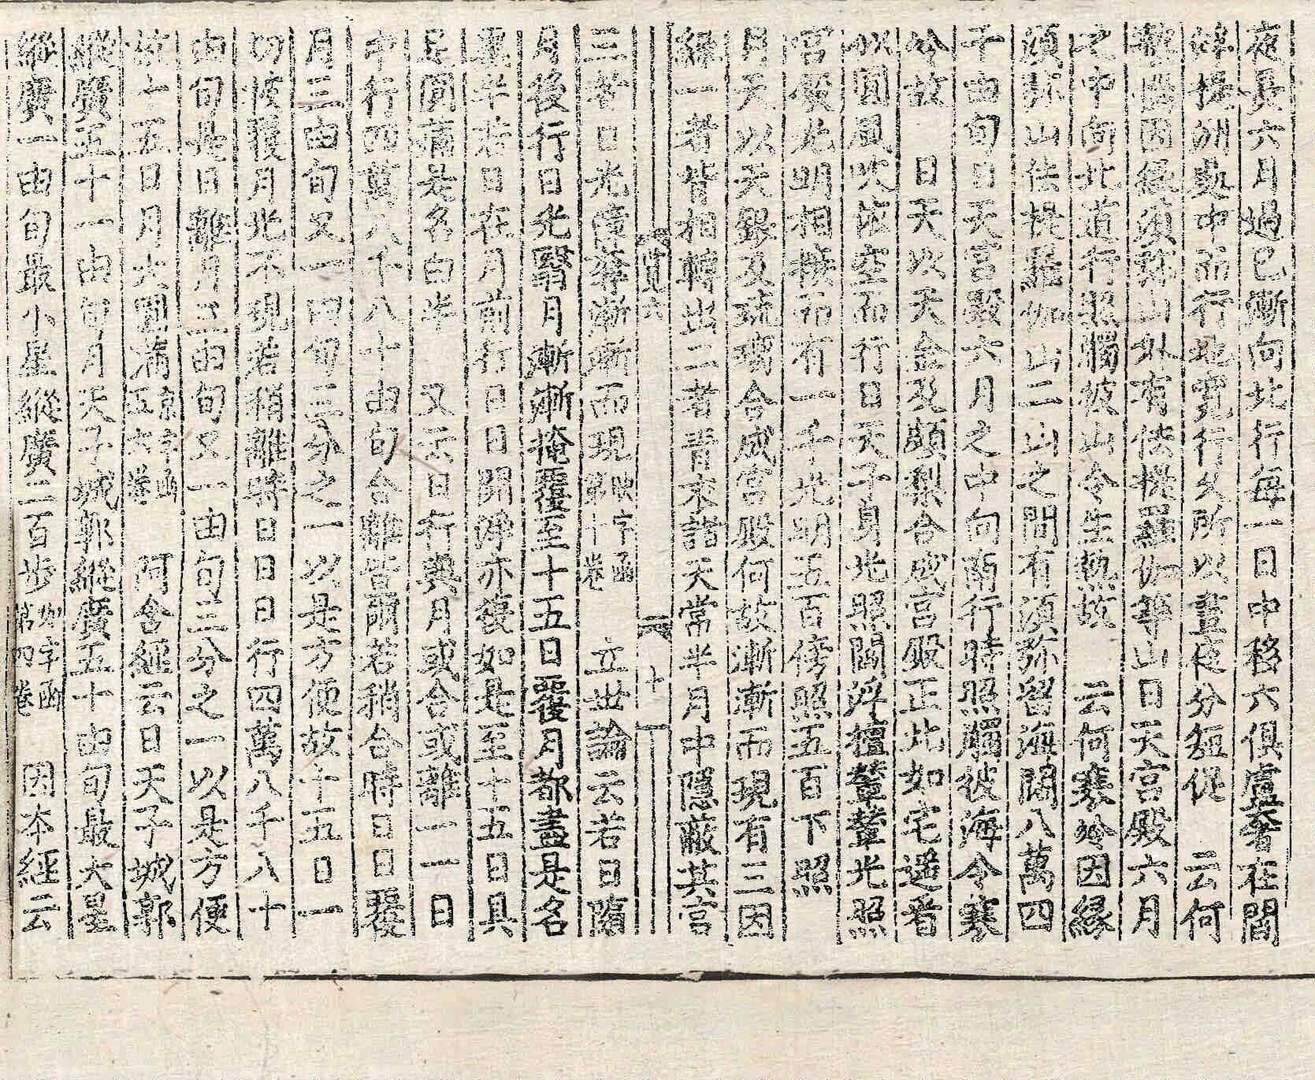 夜長六月過已漸向北行每一日中移六俱盧奢在閻
浮提洲處中而行地寬行久所以晝夜分短促　云何
熱際因緣須弥山外有佉提羅伽等山日天宮殿六月
之中向北道行照觸彼山令生熱故　云何寒冷因緣
須弥山佉提羅伽山二山之間有須弥留海闊八萬四
千由旬日天宮殿六月之中向南行時照觸彼海令寒
冷故　日天以天金及頗梨合成宮殿正比如宅遥看
似圓風吹依空而行日天子身光照閻浮檀輦輦光照
宮殿光明相接而有一千光明五百傍照五百下照
月天以天銀及琉璃合成宮殿何故漸漸而現有三因
緣一者背相轉出二者青衣諸天常半月中隱蔽其宮
六 十
三者日光障蔽漸漸而現映字函第十卷　立世論云若日隨
月後行日光翳月漸漸掩覆至十五日覆月都盡是名
黑半若日在月前行日日開淨亦復如是至十五日具
足圓滿是名白半　又云日行與月或合或離一一日
中行四萬八千八十由旬合離皆爾若稍合時日日覆
月三由旬又一由旬三分之一以是方便故十五日一
切被覆月光不現若稍離時日日日行四萬八千八十
由旬是日離月三由旬又一由旬三分之一以是方便
故十五日月大圓滿京字函五六卷　阿含經云日天子城郭
縱廣五十一由旬月天子城郭縱廣五十由旬最大星
縱廣一由旬最小星縱廣二百步字函第四卷　因本經云